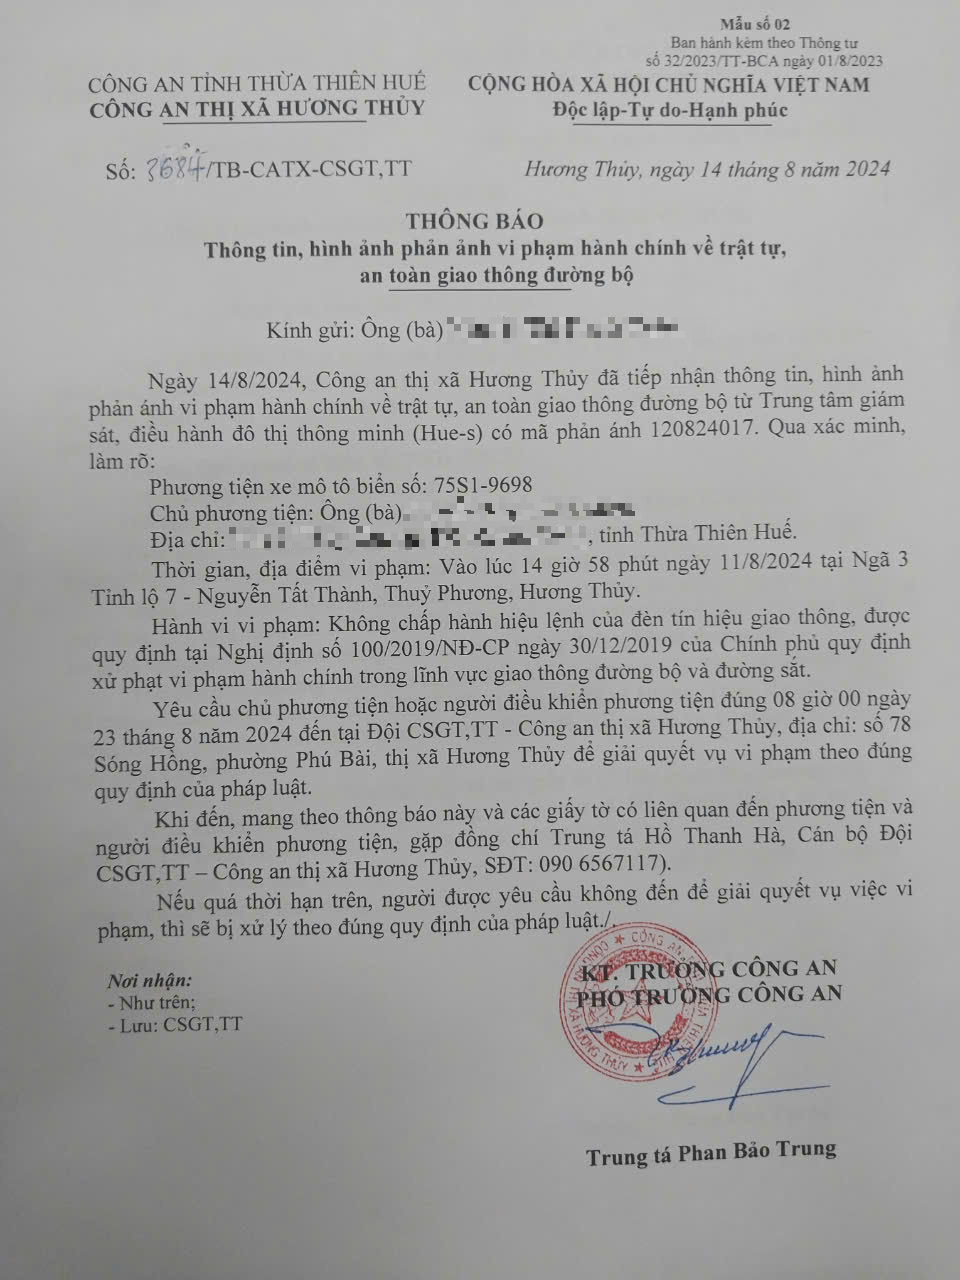 Mẫu số 02
Ban hành kèm theo Thông tư
số 32/2023/TT-BCA ngày 01/8/2023
CÔNG AN TỈNH THỪA THIÊN HUẾ
CÔNG AN THỊ XÃ HƯƠNG THỦY
CỘNG HÒA XÃ HỘI CHỦ NGHĨA VIỆT NAM
Độc lập-Tự do-Hạnh phúc
Số: 3684/TB-CATX-CSGT,TT
Hương Thủy, ngày 14 tháng 8 năm 2024
THÔNG BÁO
Thông tin, hình ảnh phản ảnh vi phạm hành chính về trật tự,
an toàn giao thông đường bộ
Kính gửi: Ông (bà)
Ngày 14/8/2024, Công an thị xã Hương Thủy đã tiếp nhận thông tin, hình ảnh
phản ánh vi phạm hành chính về trật tự, an toàn giao thông đường bộ từ Trung tâm giám
sát, điều hành đô thị thông minh (Hue-s) có mã phản ánh 120824017. Qua xác minh,
làm rõ:
Phương tiện xe mô tô biển số: 75S1-9698
Chủ phương tiện: Ông (bà)
Địa chỉ: , tỉnh Thừa Thiên Huế.
Thời gian, địa điểm vi phạm: Vào lúc 14 giờ 58 phút ngày 11/8/2024 tại Ngã 3
Tỉnh lộ 7 - Nguyễn Tất Thành, Thuỷ Phương, Hương Thủy.
Hành vi vi phạm: Không chấp hành hiệu lệnh của đèn tín hiệu giao thông, được
quy định tại Nghị định số 100/2019/NĐ-CP ngày 30/12/2019 của Chính phủ quy định
xử phạt vi phạm hành chính trong lĩnh vực giao thông đường bộ và đường sắt.
Yêu cầu chủ phương tiện hoặc người điều khiển phương tiện đúng 08 giờ 00 ngày
23 tháng 8 năm 2024 đến tại Đội CSGT,TT - Công an thị xã Hương Thủy, địa chỉ: số 78
Sóng Hồng, phường Phú Bài, thị xã Hương Thủy để giải quyết vụ vi phạm theo đúng
quy định của pháp luật.
Khi đến, mang theo thông báo này và các giấy tờ có liên quan đến phương tiện và
người điều khiển phương tiện, gặp đồng chí Trung tá Hồ Thanh Hà, Cán bộ Đội
CSGT,TT – Công an thị xã Hương Thủy, SĐT: 090 6567117).
Nếu quá thời hạn trên, người được yêu cầu không đến để giải quyết vụ việc vi
phạm, thì sẽ bị xử lý theo đúng quy định của pháp luật./.
Nơi nhận:
- Như trên;
- Lưu: CSGT,TT
KT. TRƯỞNG CÔNG AN
PHÓ TRƯỞNG CÔNG AN
Trung tá Phan Bảo Trung